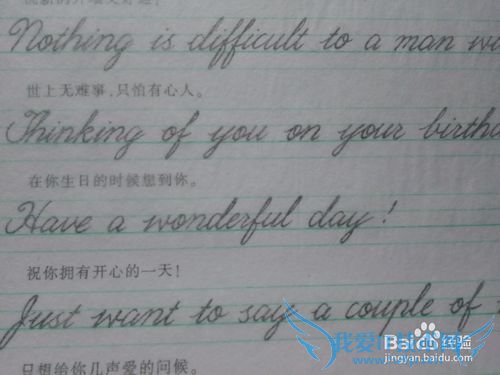 Nothing is difficult to a man
世上无难事,只怕有心人。
Thinking of you on your
在你生日的时候想到你。
Have a wonderful day!
祝你拥有开心的一天!
Just want to say a couple of
只想给你几声爱的问候。
Baidu 经验
jingyan.baidu.com